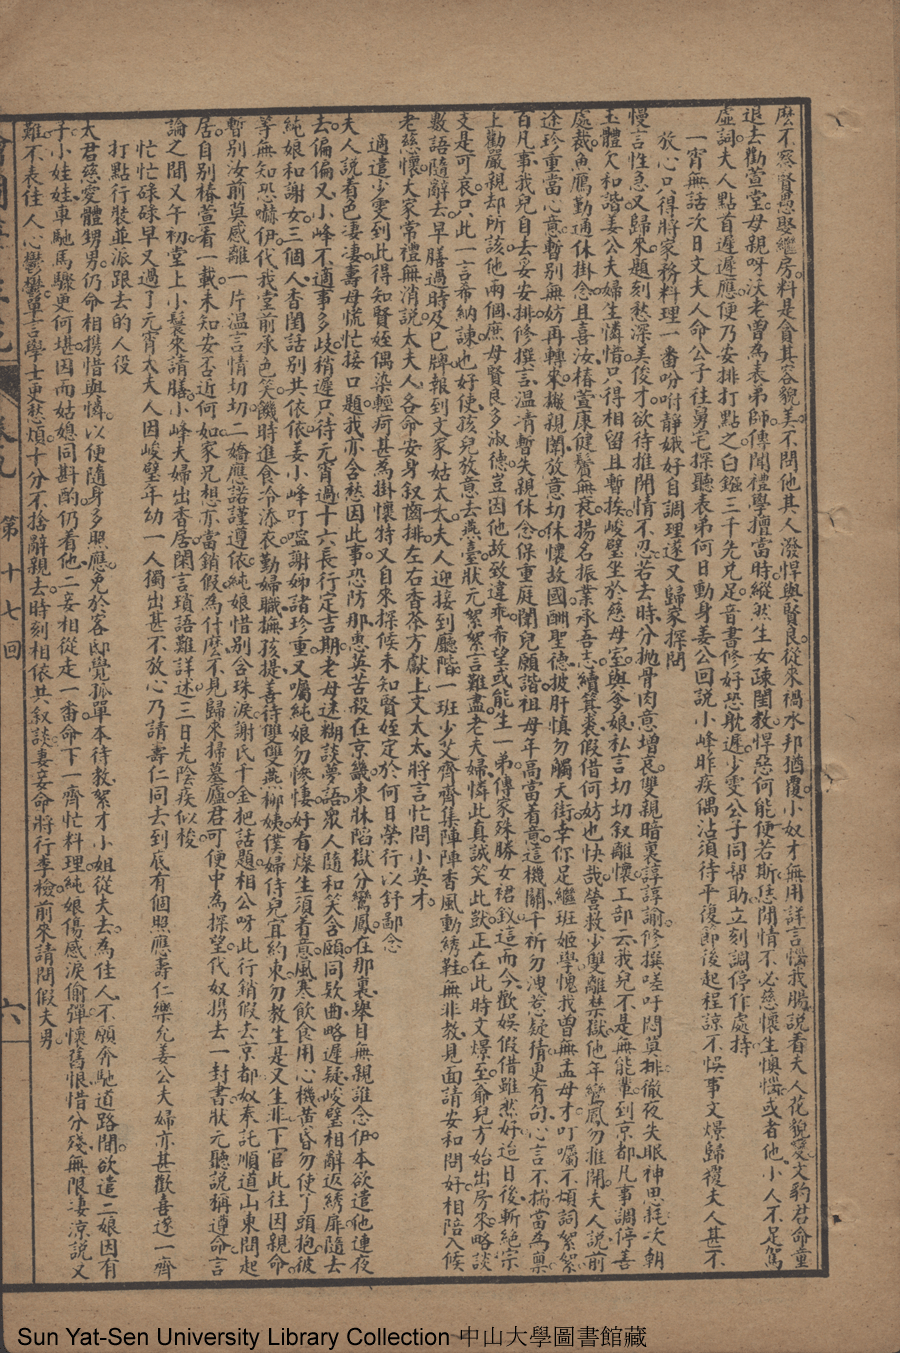 麽不察賢愚娶繼房料是貪其容貌美不問他其人潑悍與賢良從來禍水邦猶覆小奴才無用詳言憐我膽說看夫人花貌變文豹君命童
退去勸萱堂母親呀沃老曾為表弟師傅聞禮學擅當時縱然生女疎閨教悍惡何能便若斯恁閉情不必慈懷生懊惱或者他小人不足篤
虛詞夫人點首遲遲應便乃安排打點之白鏹三千先兄足音書修好恐躭遲少雯公子同幫助立刻調停作處持
一宵無話次日文夫人命公子往舅宅探聽表弟何日動身姜公回說小峰昨疾偶沾須待平復節後起程諒不悞事文爆歸覆夫人甚不
放心只得將家務料理一番吩咐靜娥好自調理遂又歸家探問
慢言性急又歸來題刻愁深美俊才欲待推開情不忍若去時分拋骨肉意增哀雙親暗裏諄諄諭修撰嗟吁悶莫排徹夜失眠神思耗次朝
玉體欠和諧姜公夫婦生憐惜只得相留且暫挨峻璧坐於慈母室與爹娘私言切切叙離懷工部云我兒不是無能輩到京都凡事調停善
處裁魚鴈勤通休掛念且喜汝椿萱康健鬢無衰揚名振業承吾志續箕裘假借何妨也快哉營救少雙離禁獄他年鸞鳳勿推開夫人說前
途珍重當心意暫別無妨再轉來撇親闈放意切休懷故國酬聖德披肝慎勿觸天街幸你足繼班姬學愧我曽無孟母才叮囑不煩詞絮絮
百凡事我兒自去安安排修撰言溫凊暫失親休念保重庭闈兒願諧祖母年高當着意這機關千祈勿洩惹疑猜更有句心言不揣當為禀
上勸嚴親却所該他兩個庶母賢良多淑德豈因他故致違乖希望或能生一弟傳家殊勝女裙釵這而今歡娛假借雖然好迨日後斬絕宗
支是可哀只此一言希納諫也好使孩兒放意去燕臺狀元絮絮言難盡老夫婦憐此真誠笑此獃正在此時文爆至爺兒方始出房來略談
數語隨辭去早膳過時及巳牌報到文家姑太太夫人迎接到廳階一班少艾齊齊集陣陣香風動綉鞋無非教見面請安和問好相陪入候
老慈懷大家常禮無消說太夫人各命安身叙齒排左右香茶方獻上文太太將言忙問小英才
適遣少雯到此得知賢姪偶染輕疴甚為掛懷特又自來探候未知賢姪定於何日榮行以舒鄙念
夫人說看色凄凄壽母慌忙接口題我亦含愁因此事恐防那惠英苦殺在京畿東牀陷獄分鸞鳳在那裏舉目無親誰念伊本欲遣他連夜
去偏偏又小峰不適事多歧稍遲只待元宵過十六長行定吉期老母迷糊談夢語眾人隨和笑含頤同欵曲略遲疑峻璧相辭返綉扉隨去
純娘和謝女三個人香閨話別共依依姜小峰叮嚀謝姊諸珍重又囑純娘勿慘悽好看燦生須着意風寒飲食用心機黃昏勿使丫頭抱彼
等無知恐嚇伊代我堂前承色笑饑時進食冷添衣勤婦職撫孩提善待雙雙燕柳姨僕婦侍兒宜約束勿教生是又生非下官此往因親命
暫別汝前莫感離一片溫言情切切二嬌應諾謹遵依純娘惜別含珠淚謝氏千金把話題相公呀此行銷假去京都奴奉託順道山東問起
居自別椿萱看一載未知安否近何如家兄想亦當銷假為什麽不見歸來掃墓廬君可便中為探望代奴携去一封書狀元聽說稱遵命言
論之間又午初堂上小鬟來請膳小峰夫婦出香居閑言瑣語難詳述三日光陰疾似梭
忙忙碌碌早又過了元宵太夫人因峻璧年幼一人獨出甚不放心乃請壽仁同去到底有個照應壽仁樂允姜公夫婦亦甚歡喜遂一齊
打點行裝並派跟去的人役
太君慈愛體甥男仍命相携惜與憐以便隨身多照應免於客邸覺孤單本待教絮才小姐從夫去為佳人不願奔馳道路間欲遣二娘因有
子小娃娃車馳馬驟更何堪因而姑媳同斟酌仍看他二妾相從走一番命下一齊忙料理純娘傷感淚偷彈懷舊恨惜分殘無限凄涼說又
難不表佳人心鬱鬱單言學士更愁煩十分不捨辭親去時刻相依共叙談妻妾命將行李檢前來請問假夫男
卷九
第十七回
六
Sun Yat-Sen University Library Collection 中山大學圖書館藏